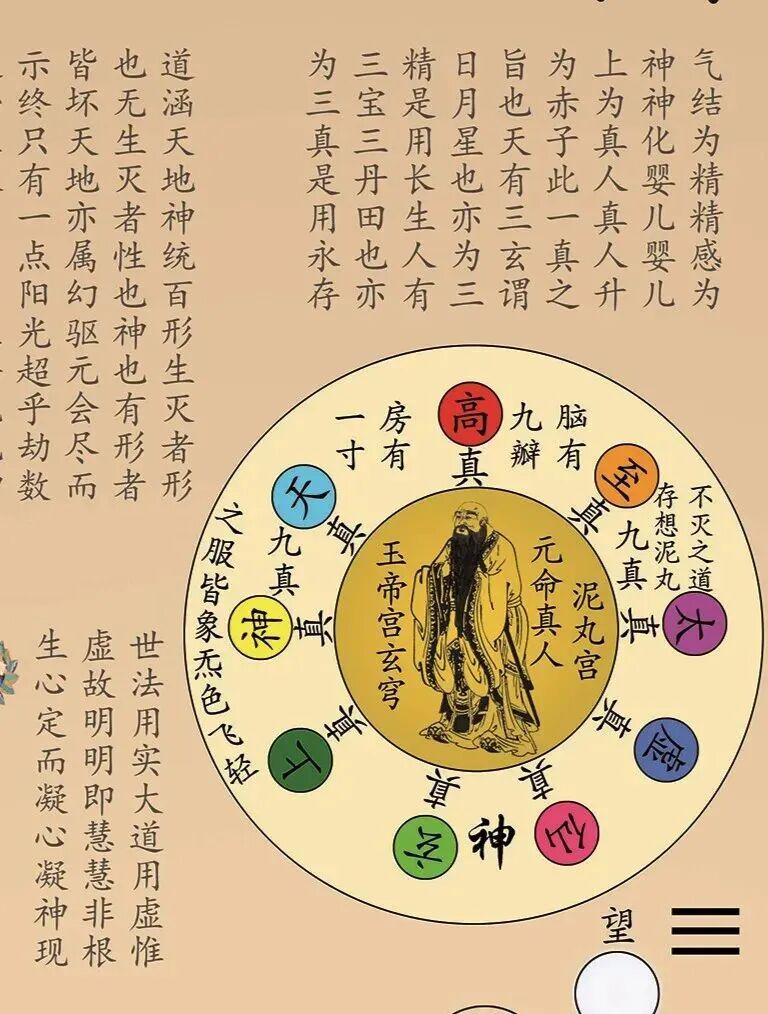 气结为精精感为
神神化婴儿婴儿
上为真人真人升
为赤子此一真之
旨也天有三玄谓
日月星也亦为三
精是用长生人有
三宝三丹田也亦
为三真是用永存
道涵天地神统百形生灭者形
也无生灭者性也神也有形者
皆坏天地亦属幻驱元会尽而
示终只有一点阳光超乎劫数
高真
至真
太真
虚真
真
真
真
神真
天真
脑有
九瓣
房有
一寸
不灭之道
存想泥丸
九真
九真
之服皆象炁色飞轻
泥丸宫
元命真人
玉帝宫玄穹
神
望
世法用实大道用虚惟
虚故明明即慧慧非根
生心定而凝心凝神现